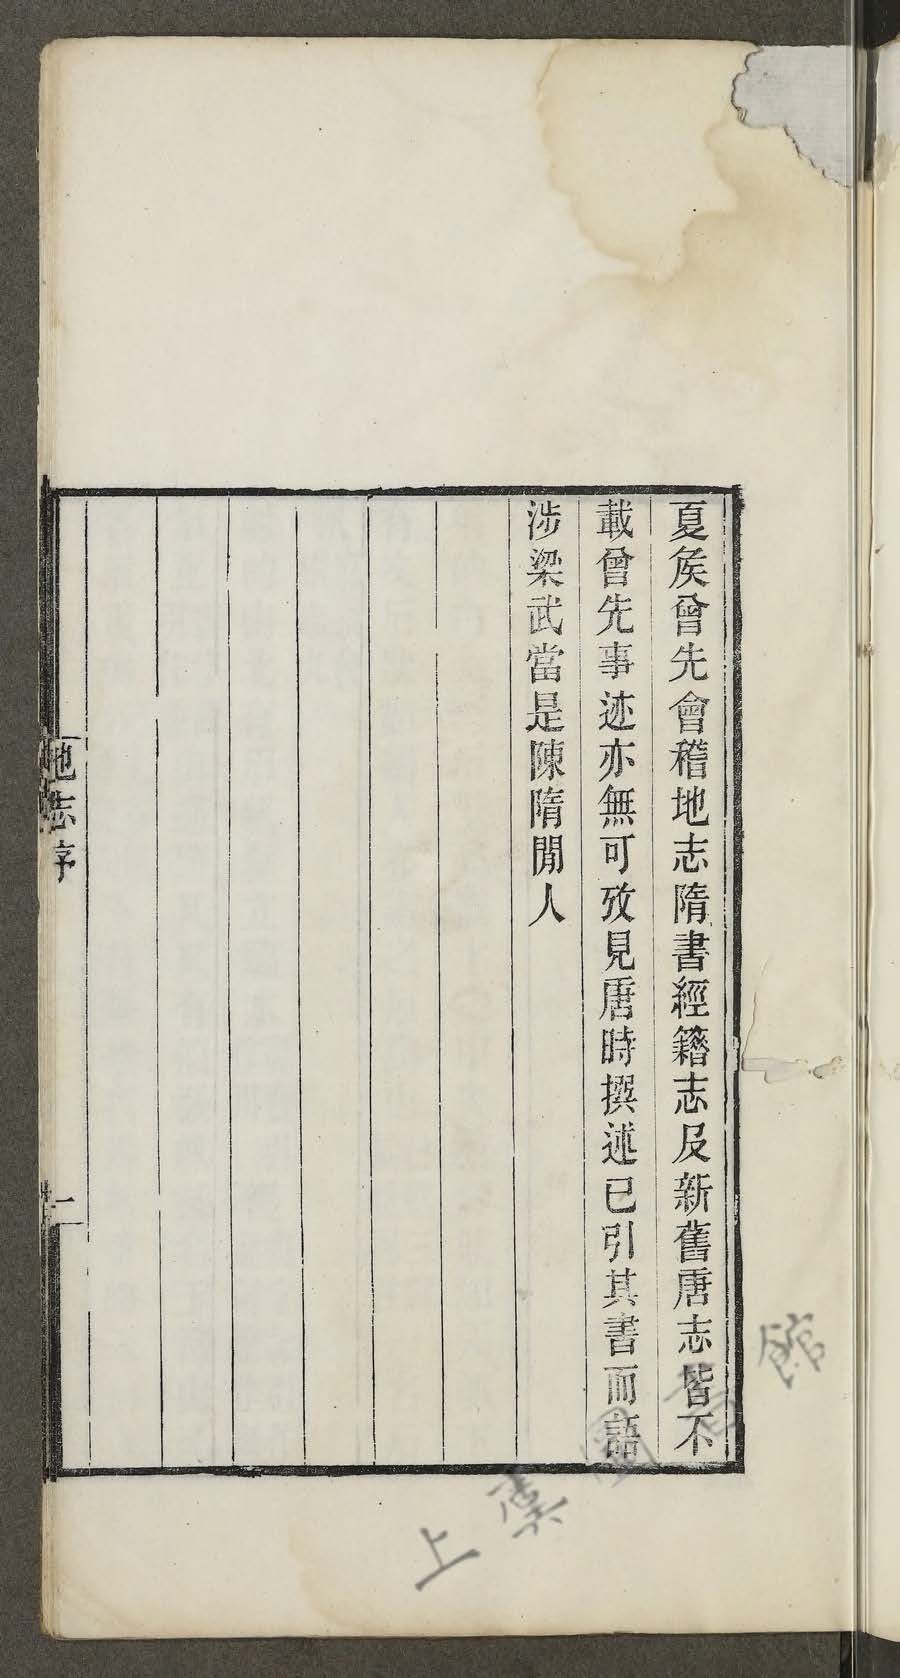 夏矦曾先會稽地志隋書經籍志及新舊唐志皆不
載曾先事迹亦無可攷見唐時撰述已引其書而語
涉梁武當是陳隋閒人
地志序
一
上虞圖書館